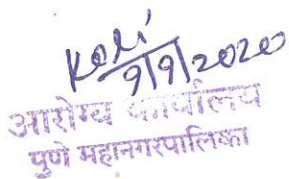 9/9/2020
आरोग्य कार्यालय
पुणे महानगरपालिका